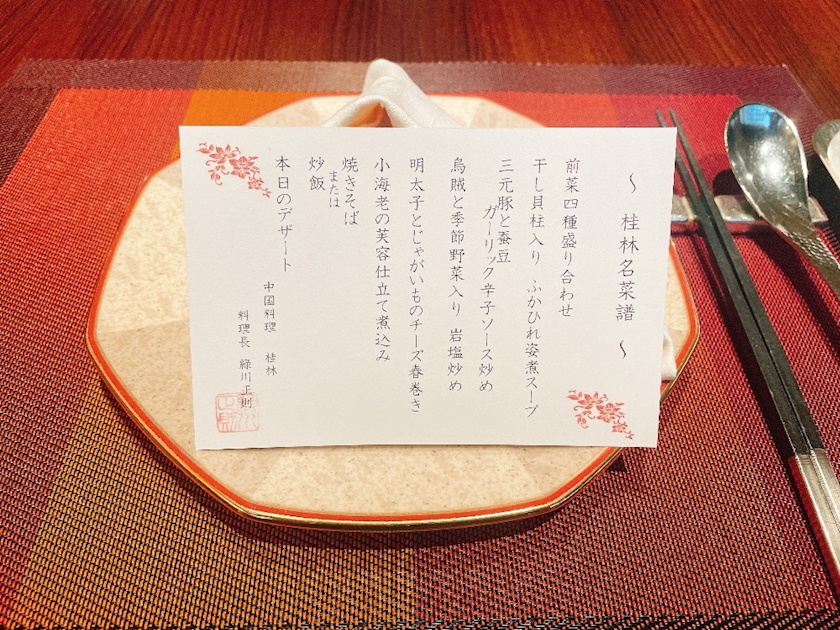 ～ 桂林名菜譜 ～
前菜四種盛り合わせ
干し貝柱入り ふかひれ姿煮スープ
三元豚と蚕豆
ガーリック辛子ソース炒め
烏賊と季節野菜入り 岩塩炒め
明太子とじゃがいものチーズ春巻き
小海老の芙容仕立て煮込み
焼きそば
または
炒飯
本日のデザート
中国料理 桂林
料理長 緑川正則